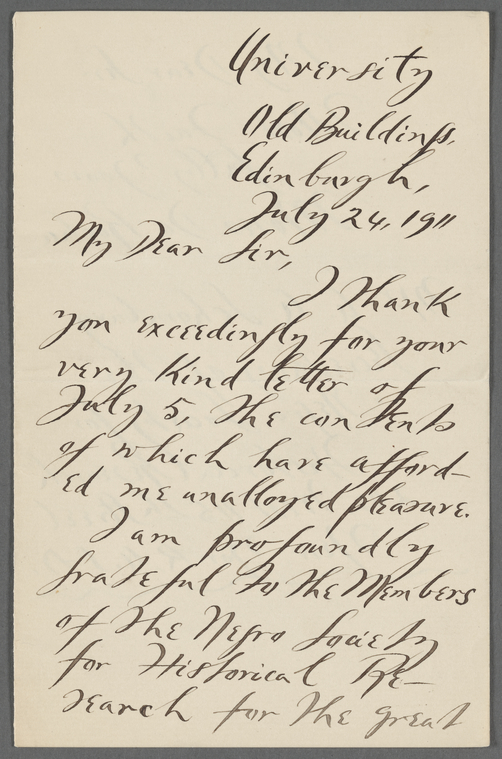 University
Old Buildings,
Edinburgh,
July 24, 1911
My Dear Sir,
I thank
you exceedingly for your
very kind letter of
July 5, the contents
of which have afford-
ed me unalloyed pleasure.
I am profoundly
grateful to the Members
of the Negro Society
for Historical Re-
search for the great